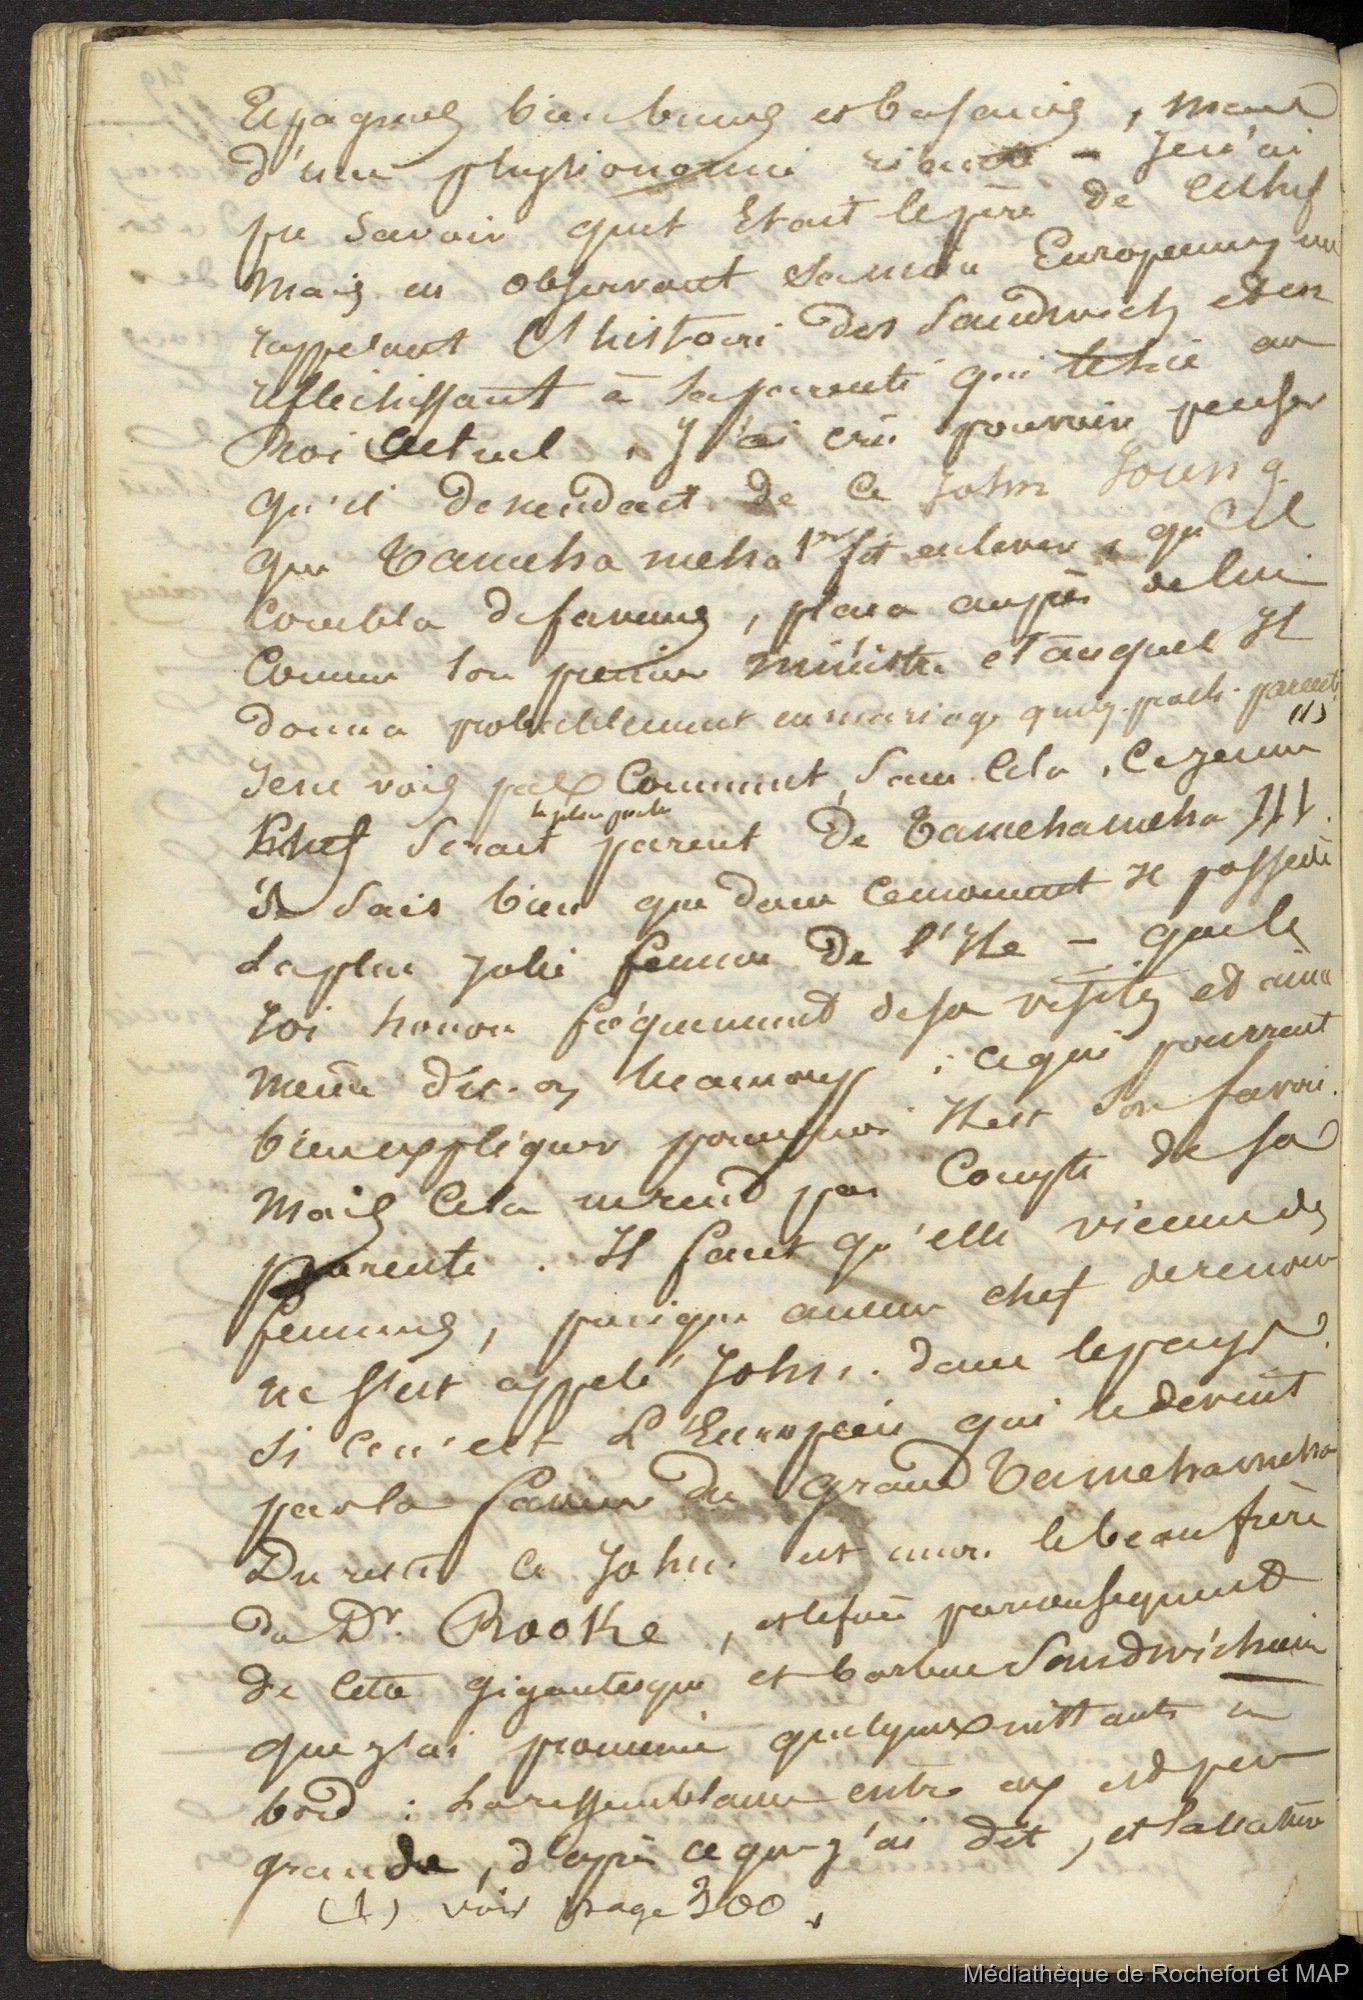 Espagnols bien bruns et basanés, mais
d'une physionomie riante - Je n'ai
pu savoir quel était le père de ce chef
mais en observant sa mine Européenne, en
rappelant l'histoire des Sandwich, et en
réfléchissant à la parenté qui le lie au
Roi actuel, j'ai cru pouvoir penser
qu'il descendait de ce John Young
que Tamehameha 1er fit enlever, qu'il
combla de faveurs, plaça auprès de lui
comme son premier ministre et auquel Il
donna probablement en mariage quelq. proch. parente
(1)
Je ne vois pas comment, sans cela, ce jeune
le plus proche
Chef serait parent de Tamehameha III.
Je sais bien que dans ce moment Il possède
la plus jolie femme de l'Ile - que le
roi honore fréquemment de sa visite, et aime
même dit-on beaucoup ; ce qui pourrait
bien expliquer pourquoi Il est son favori.
Mais cela ne rend pas compte de sa
parenté. Il faut qu'elle vienne des
femmes, puisque aucun chef de renom
ne s'est appelé John. dans le pays
si ce n'est l'Européen qui le devint
par la faveur du grand Tamehameha
Du reste ce John. est le beau frère
du Dr. Rooke, et le frère par conséquent
de cette gigantesque et barbue Sandwichienne
que j'ai promenée quelques instants à
bord : La ressemblance entre eux est peu
grande, d'après ce que j'ai dit, et la
(1) voir page 300.
Médiathèque de Rochefort et MAP